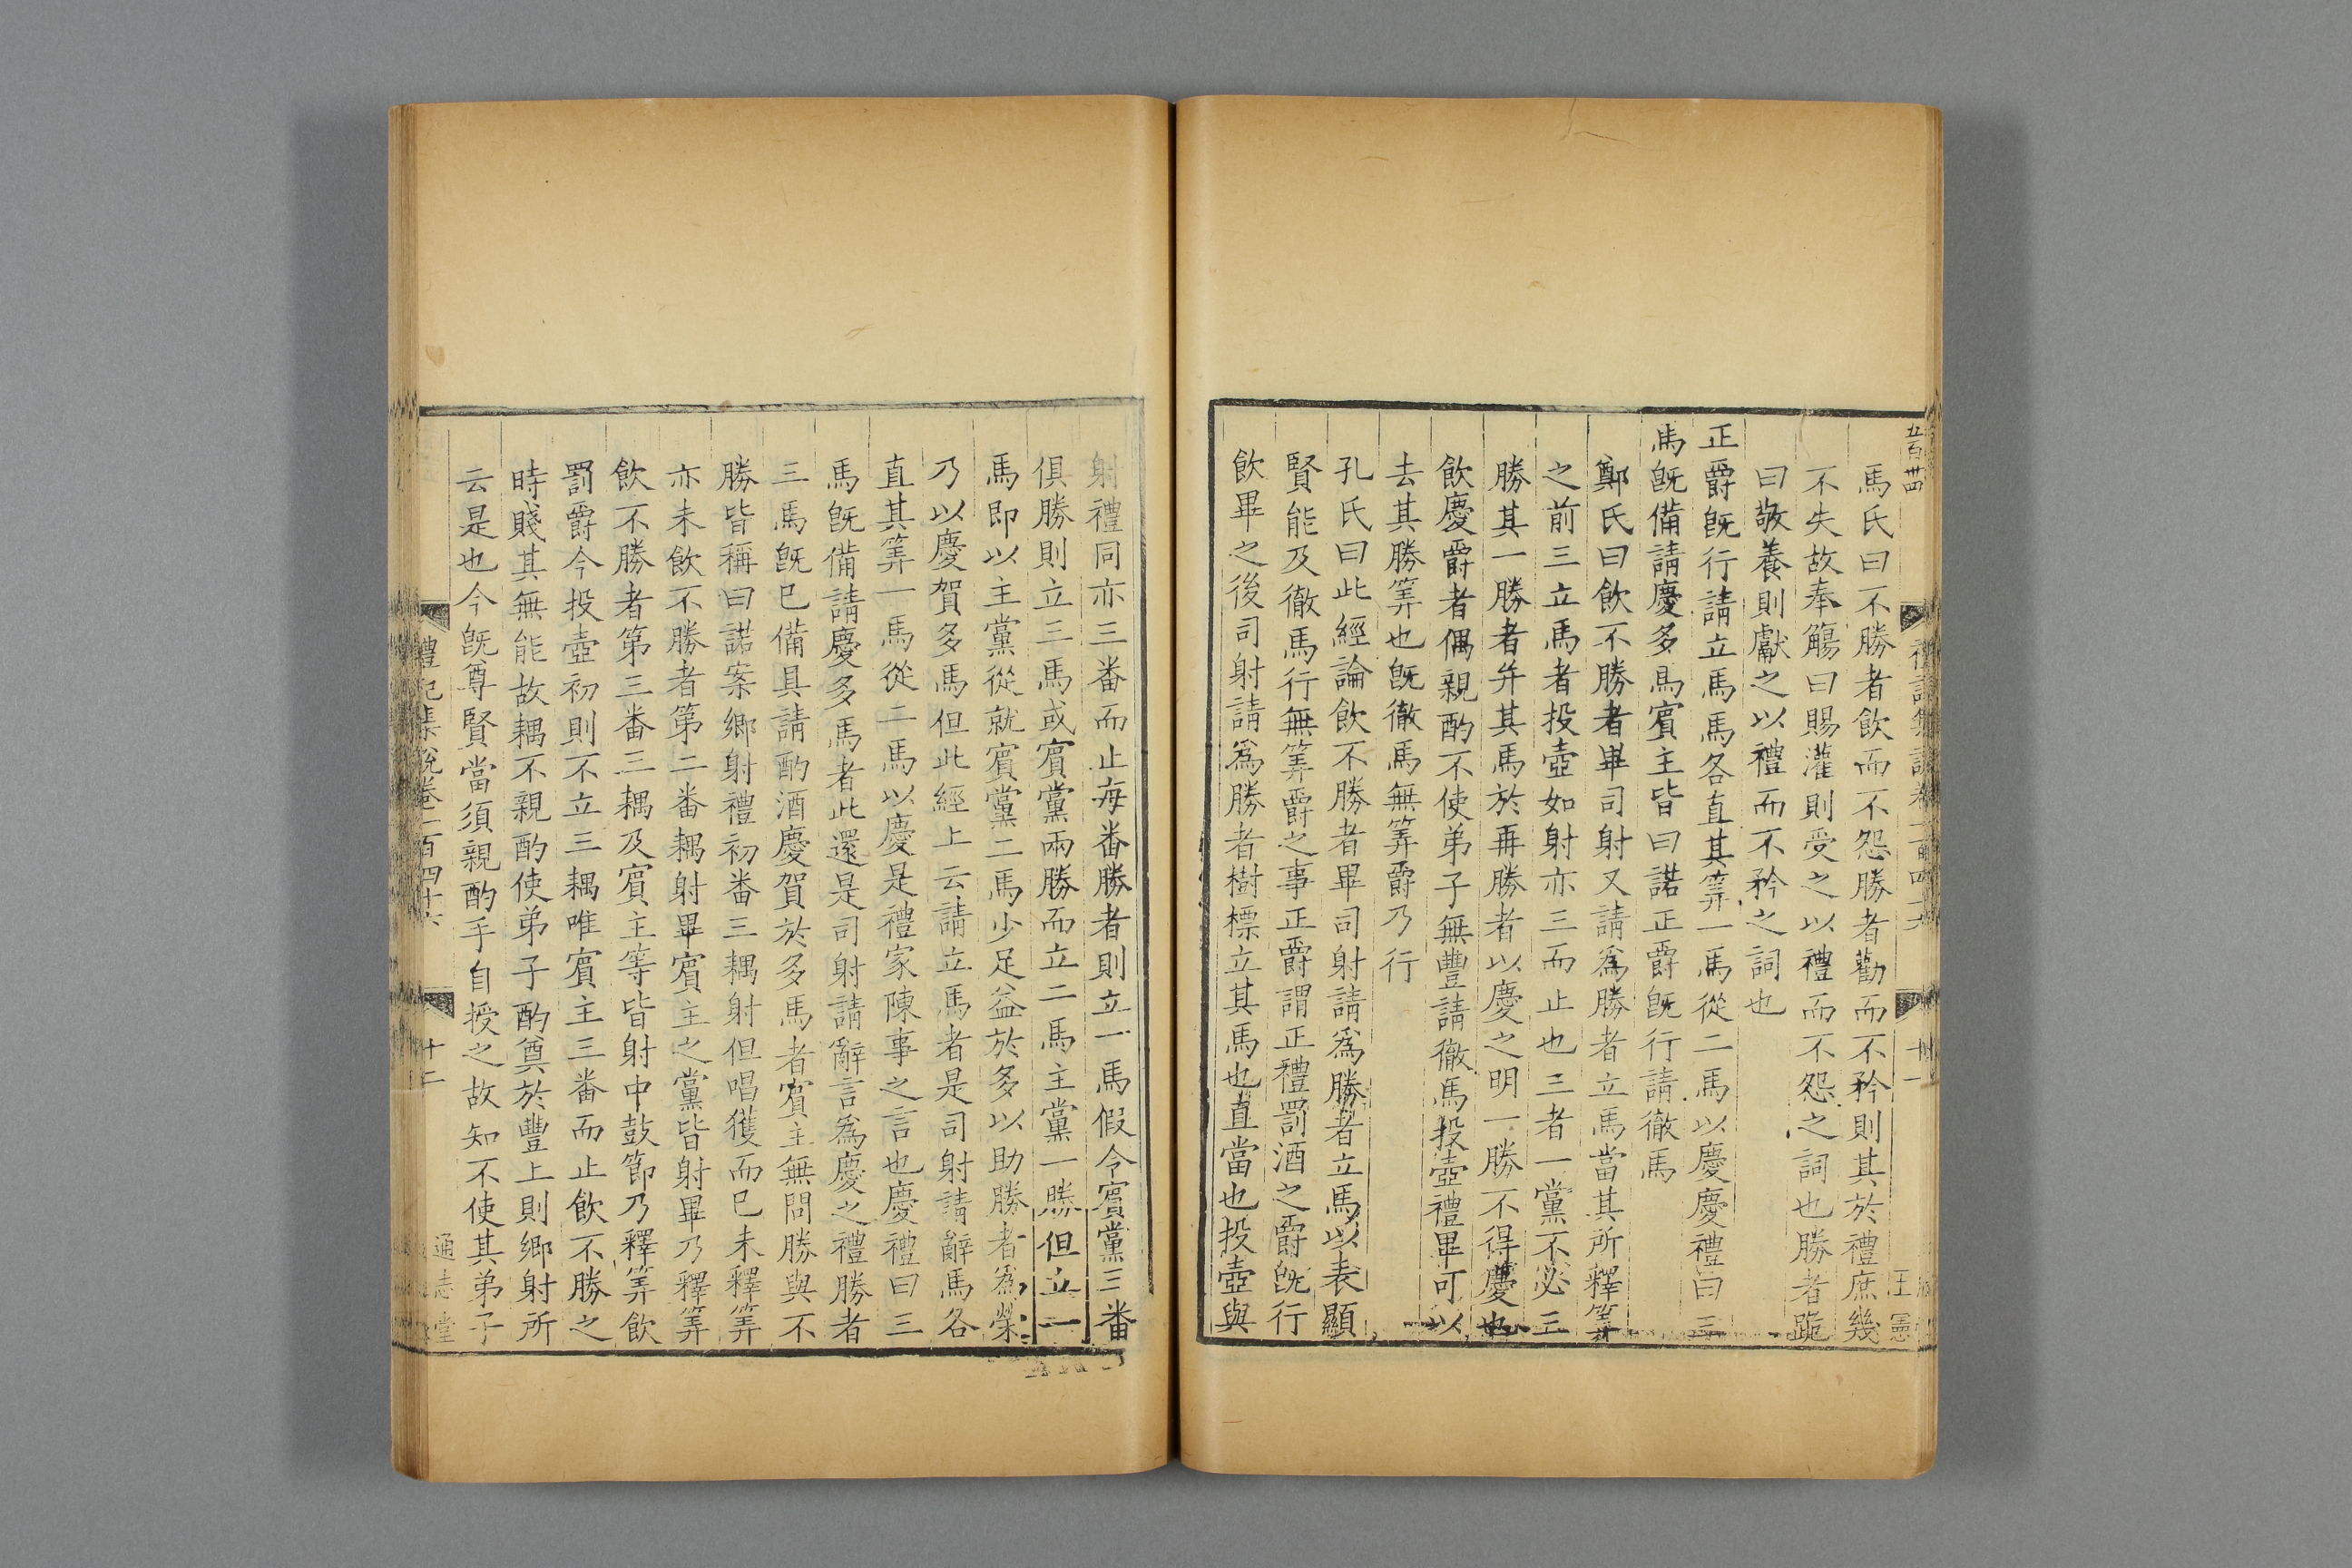 五百卌四
馬氏曰不勝者飲而不怨勝者勸而不矜則其於禮庶幾
不失故奉觴曰賜灌則受之以禮而不怨之詞也勝者跪
曰敬養則獻之以禮而不矜之詞也
正爵旣行請立馬馬各直其筭一馬從二馬以慶慶禮曰三
馬旣備請慶多馬賓主皆曰諾正爵旣行請徹馬
鄭氏曰飲不勝者畢司射又請爲勝者立馬當其所釋筭
之前三立馬者投壺如射亦三而止也三者一黨不必三
勝其一勝者并其馬於再勝者以慶之明一勝不得慶也
飲慶爵者偶親酌不使弟子無豐請徹馬投壺禮畢可以
去其勝筭也旣徹馬無筭爵乃行
孔氏曰此經論飲不勝者畢司射請爲勝者立馬以表顯
賢能及徹馬行無筭爵之事正爵謂正禮罰酒之爵旣行
飲畢之後司射請爲勝者樹標立其馬也直當也投壺與
射禮同亦三番而止每番勝者則立一馬假令賓黨三番
俱勝則立三馬或賓黨兩勝而立二馬主黨一勝但立一
馬即以主黨從就賓黨二馬少足益於多以助勝者爲榮
乃以慶賀多馬但此經上云請立馬者是司射請辭馬各
直其筭一馬從二馬以慶是禮家陳事之言也慶禮曰三
馬旣備請慶多馬者此還是司射請辭言爲慶之禮勝者
三馬旣已備具請酌酒慶賀於多馬者賓主無問勝與不
勝皆稱曰諾案鄉射禮初番三耦射但唱獲而已未釋筭
亦未飲不勝者第二番耦射畢賓主之黨皆射畢乃釋筭
飲不勝者第三番三耦及賓主等皆射中鼓節乃釋筭飲
罰爵今投壺初則不立三耦唯賓主三番而止飲不勝之
時賤其無能故耦不親酌使弟子酌奠於豐上則鄉射所
云是也今旣尊賢當須親酌手自授之故知不使其弟子
禮記集說卷一百四十六
十二
通志堂